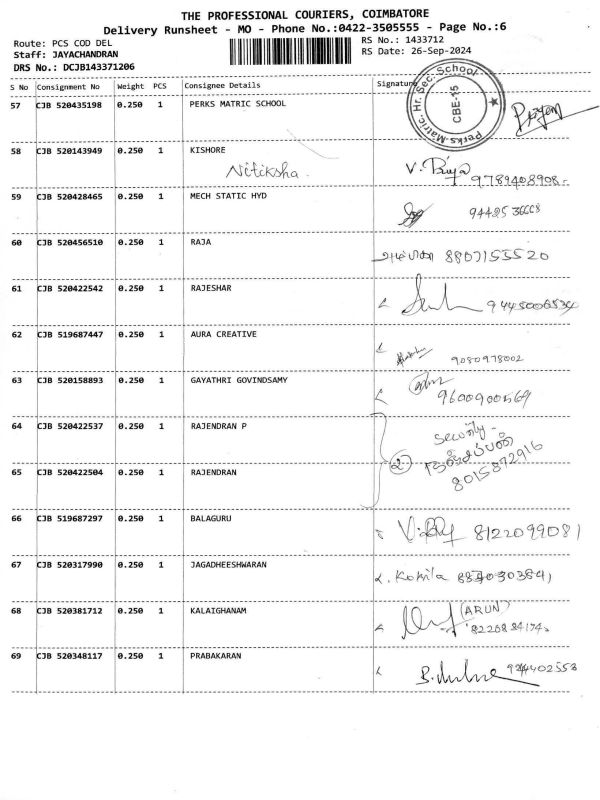 THE PROFESSIONAL COURIERS, COIMBATORE
Delivery Runsheet - MO - Phone No.:0422-3505555 - Page No.:6
Route: PCS COD DEL
Staff: JAYACHANDRAN
DRS No.: DCJB143371206
RS No.: 1433712
RS Date: 26-Sep-2024
S No Consignment No Weight PCS Consignee Details Signature
Perks Matric. Hr. Sec. School
CBE-15
57 CJB 520435198 0.250 1 PERKS MATRIC SCHOOL
58 CJB 520143949 0.250 1 KISHORE
Nitiksha. V. Priya 9789408908
59 CJB 520428465 0.250 1 MECH STATIC HYD
60 CJB 520456510 0.250 1 RAJA
8807155520
61 CJB 520422542 0.250 1 RAJESHAR
9445006534
62 CJB 519687447 0.250 1 AURA CREATIVE
9080978002
63 CJB 520158893 0.250 1 GAYATHRI GOVINDSAMY
9600900569
64 CJB 520422537 0.250 1 RAJENDRAN P
Security -
2
8015872916
65 CJB 520422504 0.250 1 RAJENDRAN
66 CJB 519687297 0.250 1 BALAGURU
8122099081
67 CJB 520317990 0.250 1 JAGADHEESHWARAN
Kokila
68 CJB 520381712 0.250 1 KALAIGHANAM
(ARUN)
69 CJB 520348117 0.250 1 PRABAKARAN